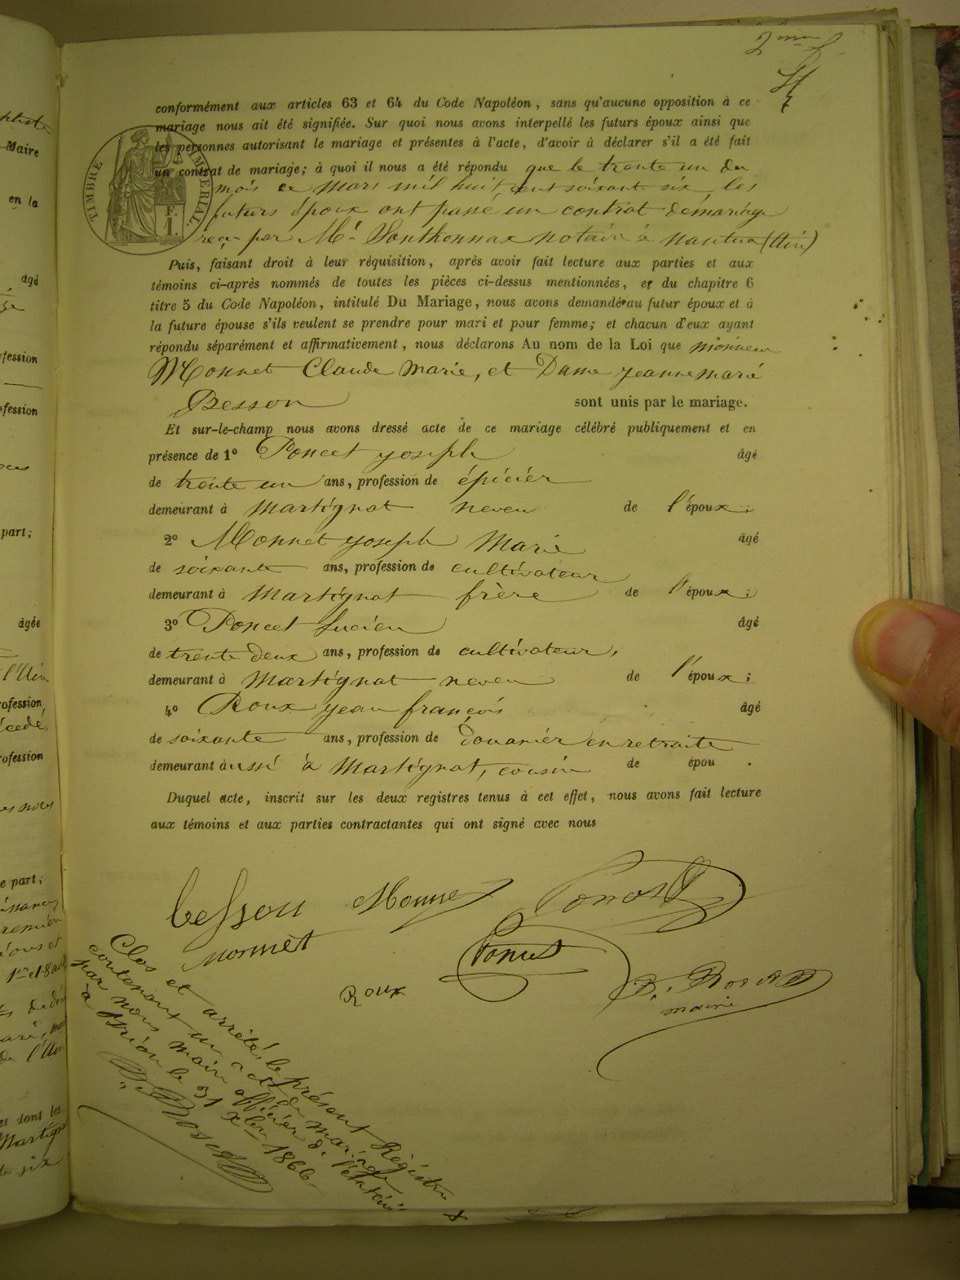 2me f.
conformément aux articles 63 et 64 du Code Napoléon, sans qu'aucune opposition à ce
mariage nous ait été signifiée. Sur quoi nous avons interpellé les futurs époux ainsi que
les personnes autorisant le mariage et présentes à l'acte, d'avoir à déclarer s'il a été fait
un contrat de mariage; à quoi il nous a été répondu que le trente un du
mois de Mars mil huit cent soixante six les
futurs époux ont passé un contrat de mariage
reçu par Mr. Sonthonnax notaire à Nantua (Ain)
TIMBRE IMPERIAL
F. 1.
Puis, faisant droit à leur réquisition, après avoir fait lecture aux parties et aux
témoins ci-après nommés de toutes les pièces ci-dessus mentionnées, et du chapitre 6
titre 5 du Code Napoléon, intitulé Du Mariage, nous avons demandé au futur époux et à
la future épouse s'ils veulent se prendre pour mari et pour femme; et chacun d'eux ayant
répondu séparément et affirmativement, nous déclarons Au nom de la Loi que monsieur
Monnet Claude Marie, et Dame jeanne marié
Besson sont unis par le mariage.
Et sur-le-champ nous avons dressé acte de ce mariage célébré publiquement et en
présence de 1° Poncet yoseph âgé
de trente un ans, profession de épicier
demeurant à Martignat neveu de l'époux;
2° Monnet yoseph Marie âgé
de soixante ans, profession de cultivateur
demeurant à Martignat frère de l'époux;
3° Poncet Lucien âgé
de trente deux ans, profession de cultivateur,
demeurant à Martignat neveu de l'époux;
4° Roux yean françois âgé
de soixante ans, profession de douanier en retraite
demeurant aussi à Martignat, cousin de épou .
Duquel acte, inscrit sur les deux registres tenus à cet effet, nous avons fait lecture
aux témoins et aux parties contractantes qui ont signé avec nous
besson Monnet Poncet
monnet Poncet
Roux
maire
Clos et arrêté le présent Régistre
contenant un acte de mariage
par nous maire officier de l'état civil
à le 31 Xbre 1866